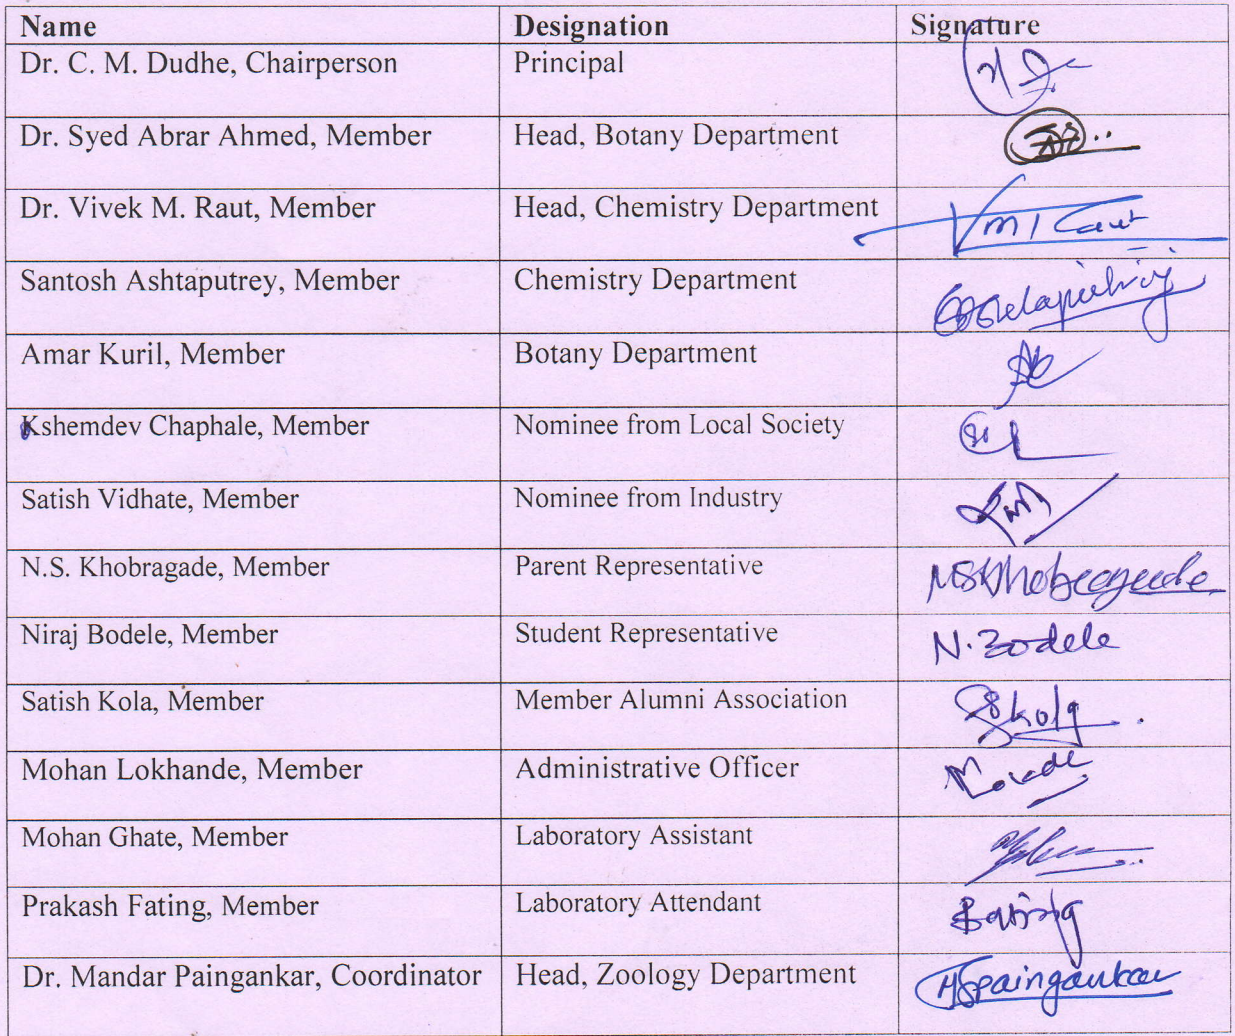 Name Designation Signature
Dr. C. M. Dudhe, Chairperson Principal
Dr. Syed Abrar Ahmed, Member Head, Botany Department
Dr. Vivek M. Raut, Member Head, Chemistry Department
Santosh Ashtaputrey, Member Chemistry Department
Amar Kuril, Member Botany Department
Kshemdev Chaphale, Member Nominee from Local Society
Satish Vidhate, Member Nominee from Industry
N.S. Khobragade, Member Parent Representative NSKhobragade
Niraj Bodele, Member Student Representative N. Bodele
Satish Kola, Member Member Alumni Association Skola
Mohan Lokhande, Member Administrative Officer
Mohan Ghate, Member Laboratory Assistant
Prakash Fating, Member Laboratory Attendant
Dr. Mandar Paingankar, Coordinator Head, Zoology Department Paingankar